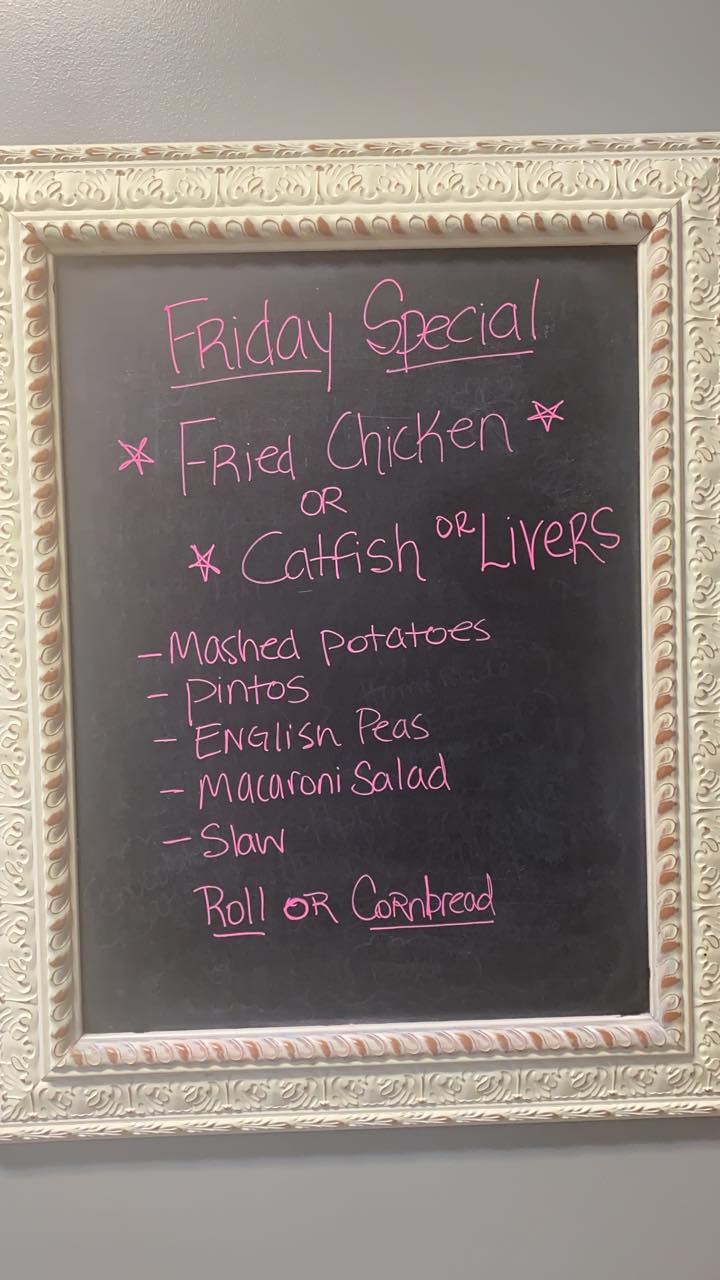 Friday Special
☆ Fried Chicken ☆
OR
☆ Catfish OR Livers
- Mashed Potatoes
- Pintos
- English Peas
- Macaroni Salad
- Slaw
Roll OR Cornbread